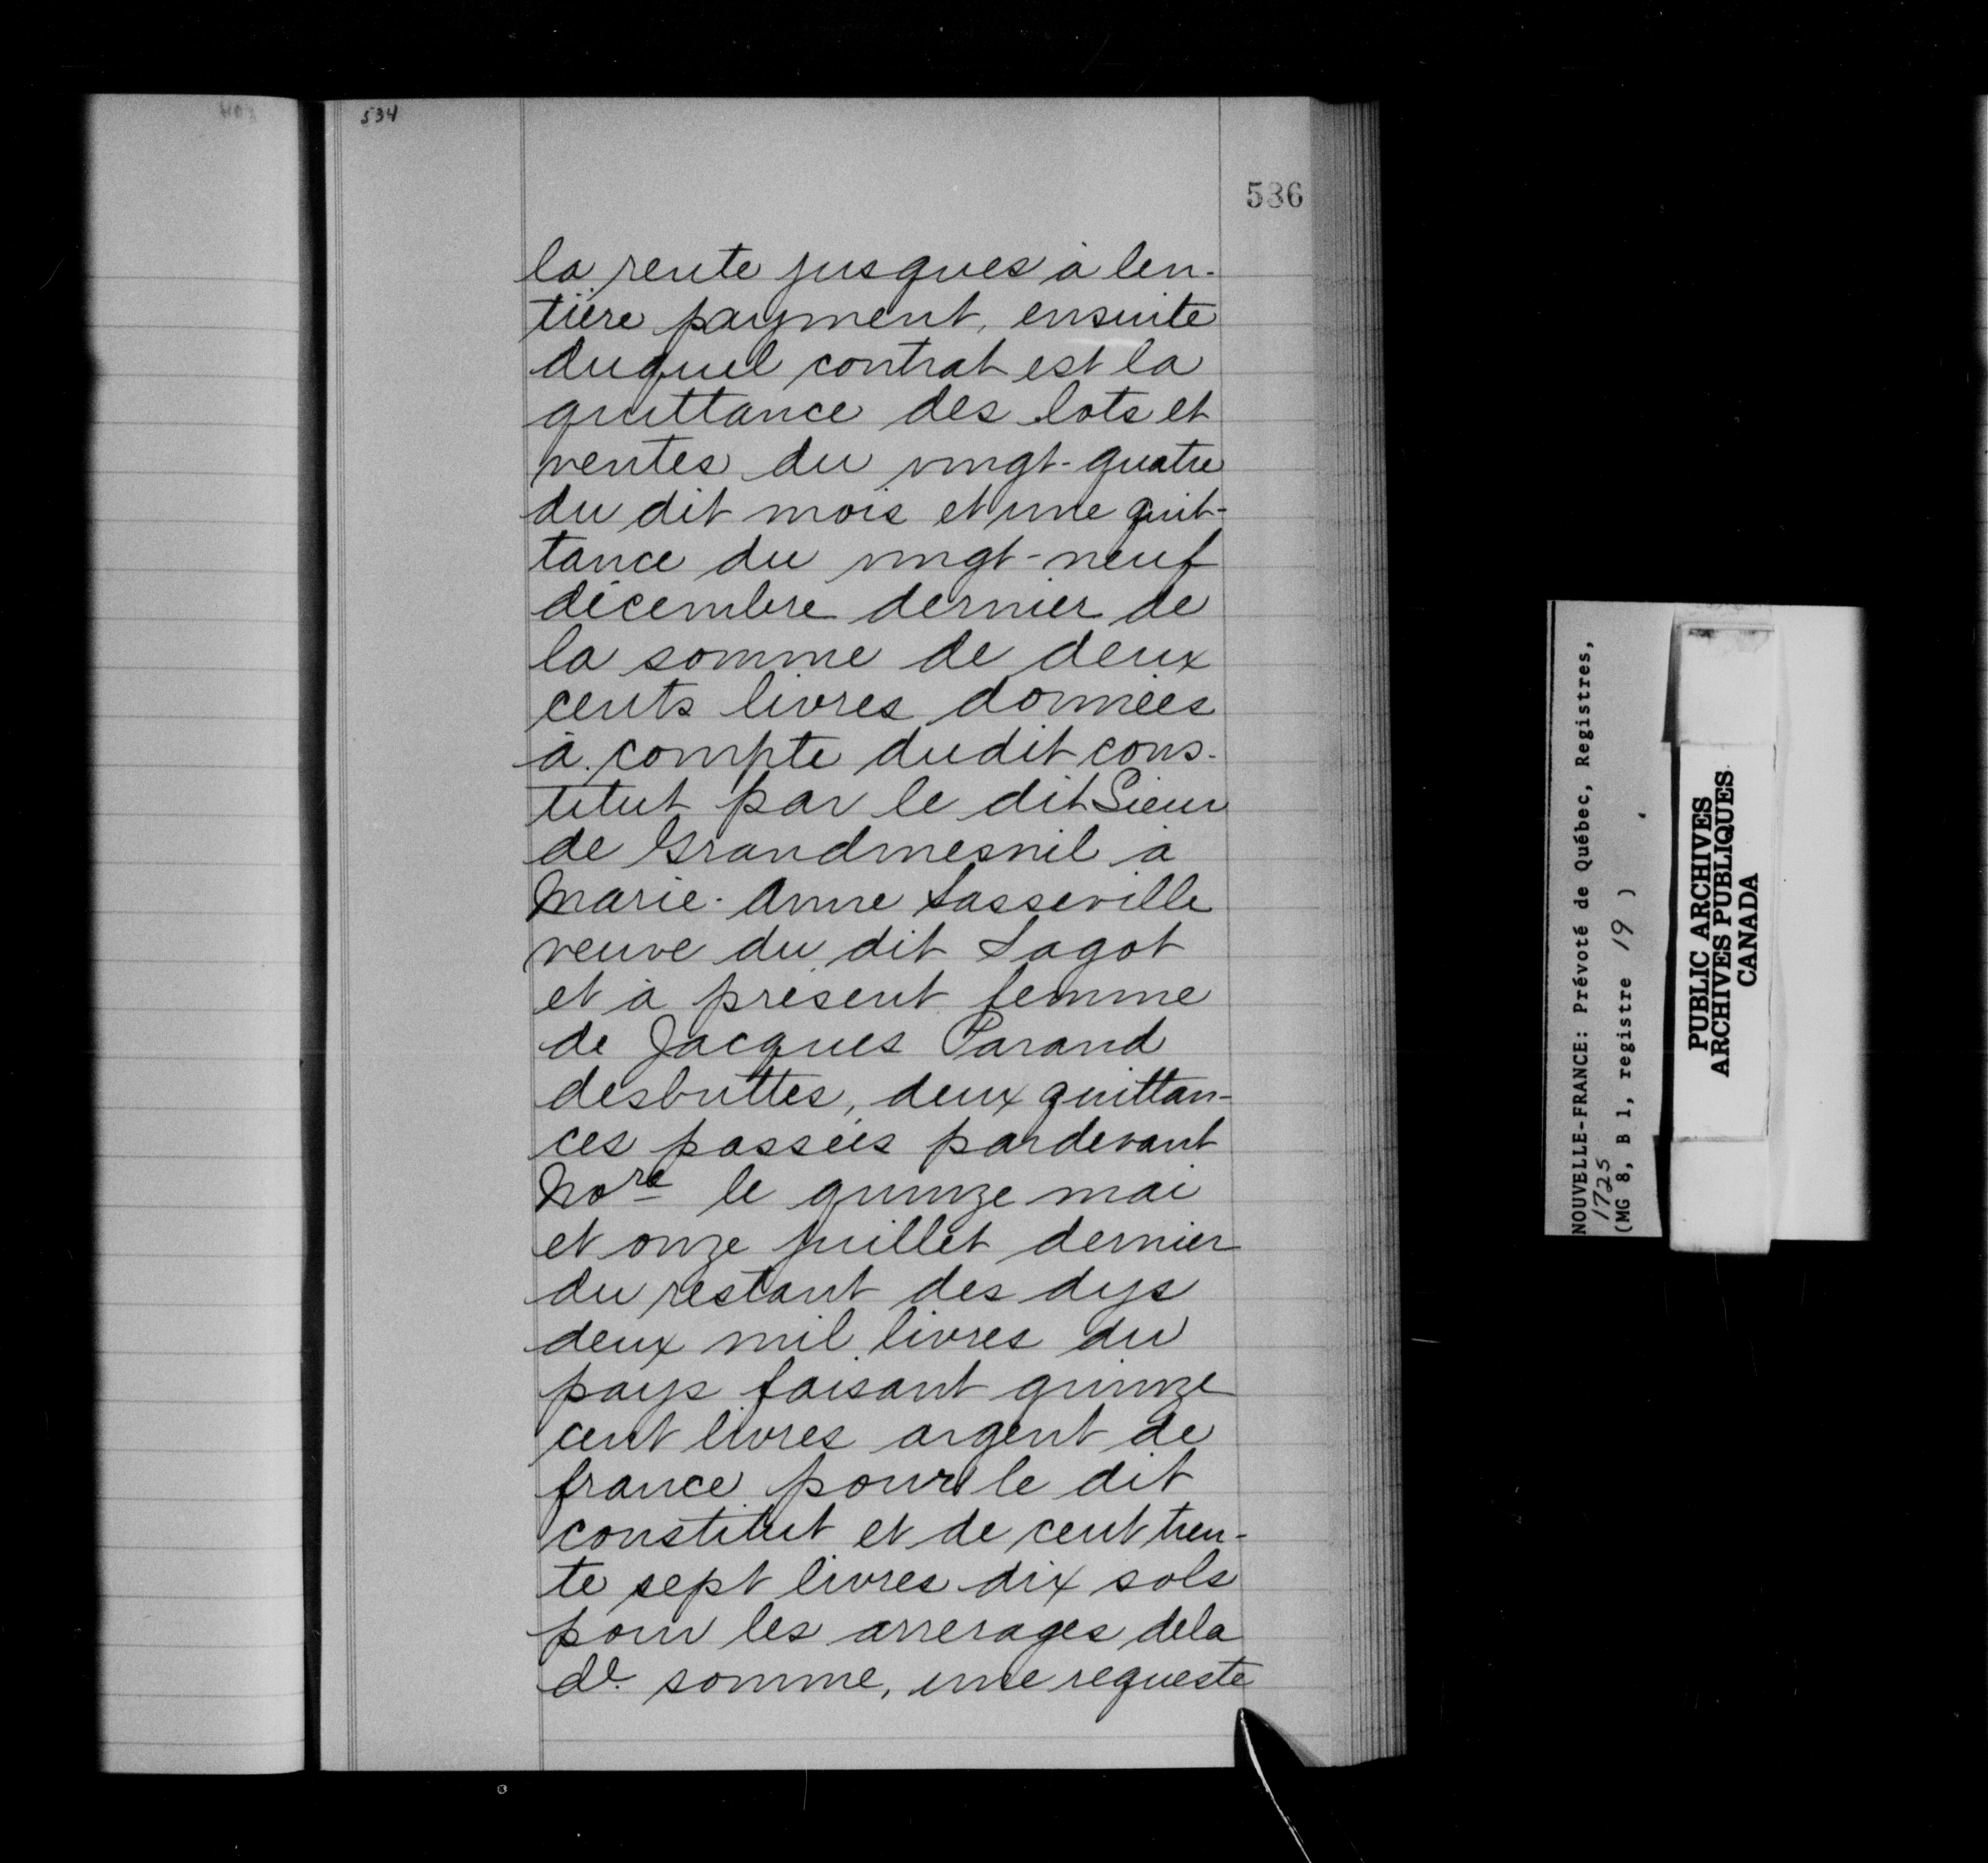 534
536
la rente jusques à len-
tière payment, ensuite
duquel contrat est la
quittance des lots et
ventes du vingt-quatre
du dit mois et une quit-
tance du vingt-neuf
décembre dernier de
la somme de deux
cents livres données
à compte dudit cons-
titut par le dit Sieur
de Grandmesnil à
Marie-Anne Sasseville
veuve du dit Lagot
et à présent femme
de Jacques Parand
desbuttes, deux quittan-
ces passées pardevant
Nore le quinze mai
et onze juillet dernier
du restant des dys
deux mil livres du
pays faisant quinze
cent livres argent de
france pour le dit
constitut et de cent tren-
te sept livres dix sols
pour les arrerages dela
de. somme, une requeste
NOUVELLE-FRANCE: Prévoté de Québec, Registres,
1725
(MG 8, B 1, registre 19 ) .
PUBLIC ARCHIVES
ARCHIVES PUBLIQUES
CANADA